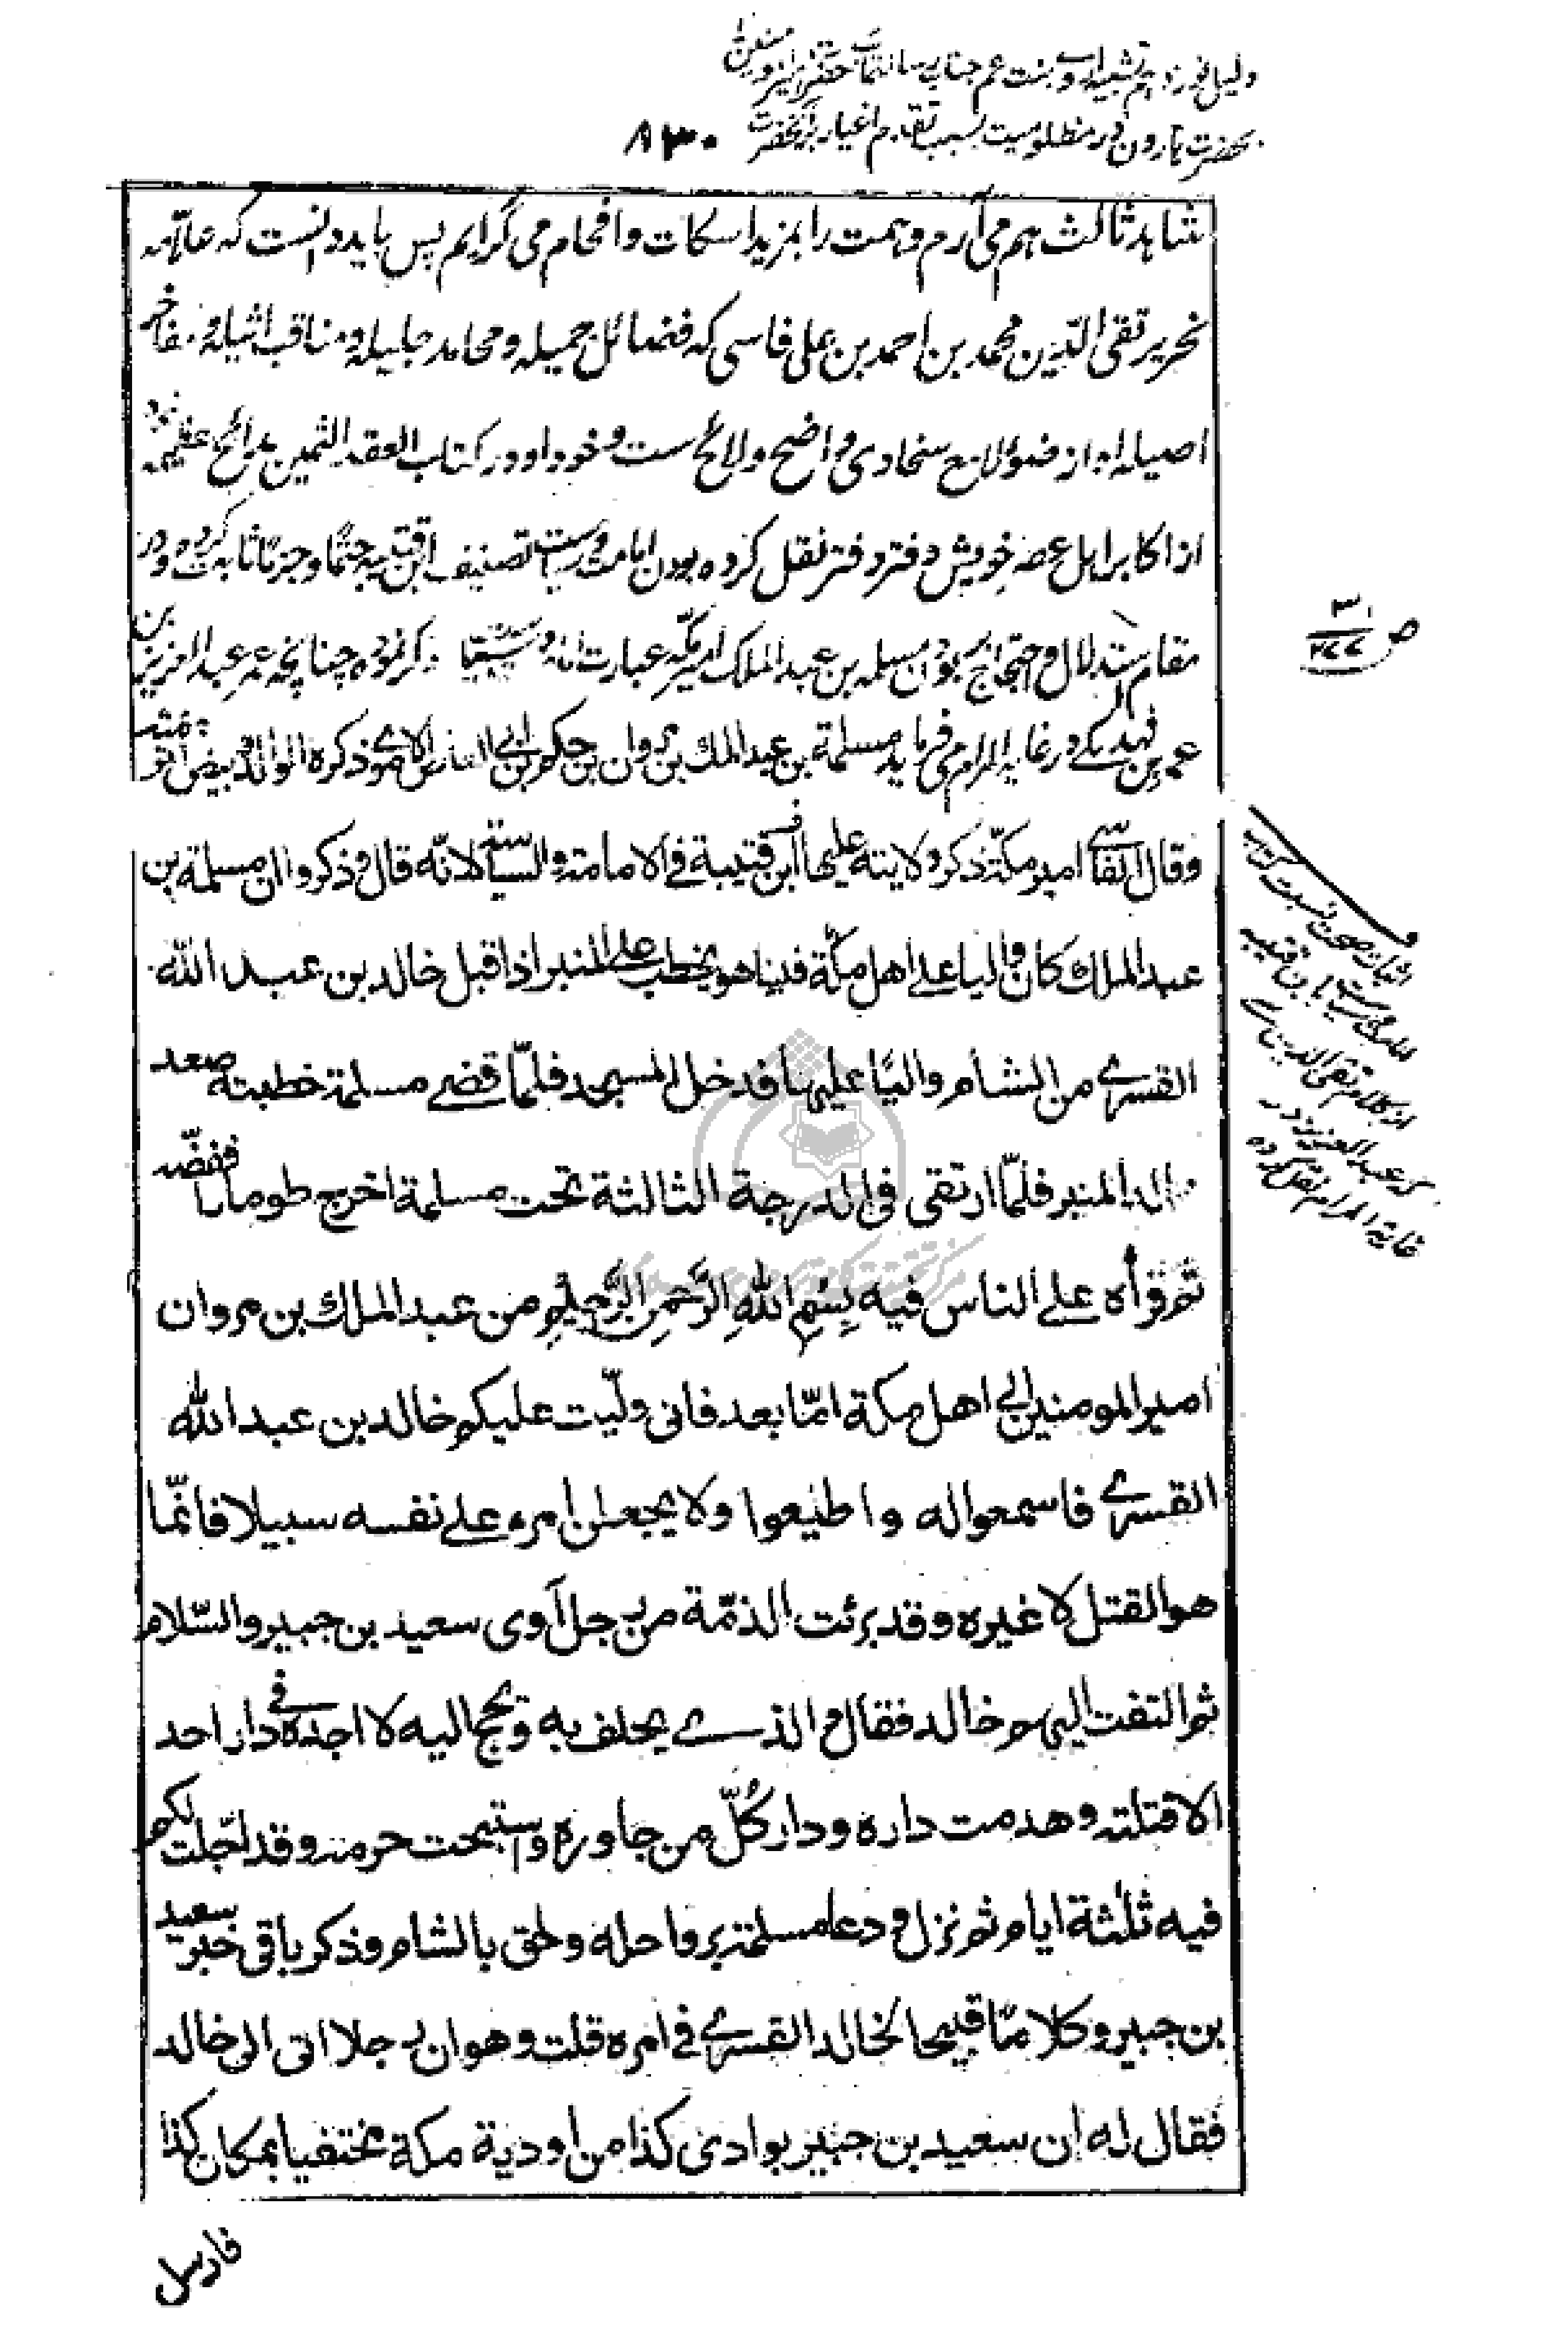 دلیل نوزدهم تشبیه او بنت عم جناب رسالتمآب حضرت امیرالمومنین را
بحضرت هارون در مظلومیت بسبب تقدم اغیار بر آنحضرت
۸۳۰
شاهد ثالث هم می آرم و همت را بمزید اسکات و افحام می گرایم پس باید دانست که علامه
نحریر تقی الدین محمد بن احمد بن علی فاسی که فضائل جمیله و محامد جلیله و مناقب اثیله و مفاخر
اصیله او از ضوء لامع سخاوی واضح و لائح ست و خود او در کتاب العقد الثمین مدائح عظیمه خود
از اکابر اهل عصر خویش دفتر دفتر نقل کرده بودن امامت و سیاست تصنیف ابن قتیبه حتما و جزما ثابت کرده و در
مقام استدلال و احتجاج بر بودن مسلمه بن عبد الملک امیر مکه عبارت امامت و سیاست ذکر نموده چنانچه عز عبد العزیز بن
عمر بن فهد مکی در غایة المرام می فرماید مسلمة بن عبد الملك بن مروان بن حكم بن ابی العاص الاموی ذكره الوالد و بیض لترجمته
وقال الفاسی امیر مكة ذكر ولایته علیها ابن قتیبة فی الامامة والسیاسة لانه قال وذكروا ان مسلمة بن
عبد الملك كان والیا علی اهل مكة فبینا هو یخطب علی المنبر اذ اقبل خالد بن عبد الله
القسری من الشام والیا علیها فدخل المسجد فلما قضی مسلمة خطبته صعد
خالد المنبر فلما ارتقی فی الدرجة الثالثة تحت مسلمة اخرج طومارا ففضه
ثم قرأه علی الناس فیه بسم الله الرحمن الرحیم من عبد الملك بن مروان
امیر المومنین الی اهل مكة اما بعد فانی ولیت علیكم خالد بن عبد الله
القسری فاسمعوا له واطیعوا ولا یجعلن امرء علی نفسه سبیلا فانما
هو القتل لا غیره وقد برئت الذمة من رجل آوی سعید بن جبیر والسلام
ثم التفت الیهم خالد فقال والذی یحلف به ویحج الیه لا اجده فی دار احد
الا قتلته وهدمت داره ودار كل من جاوره واستبحت حرمته وقد اجلت لكم
فیه ثلثة ایام ثم نزل ودعا مسلمة برواحله ولحق بالشام وذكر باقی خبر سعید
بن جبیر وكلاما قبیحا لخالد القسری فی امره قلت وهو ان رجلا اتی الی خالد
فقال له ان سعید بن جبیر بوادی كذا من اودیة مكة مختفیا بمكان كذا
فارسل
ص ۲۷۷
اثبات صحت نسبت کتاب
امامت و سیاست بابن قتیبه
از کلام تقی الدین فاسی
که عبد العزیز در
غایة المرام نقل کرده